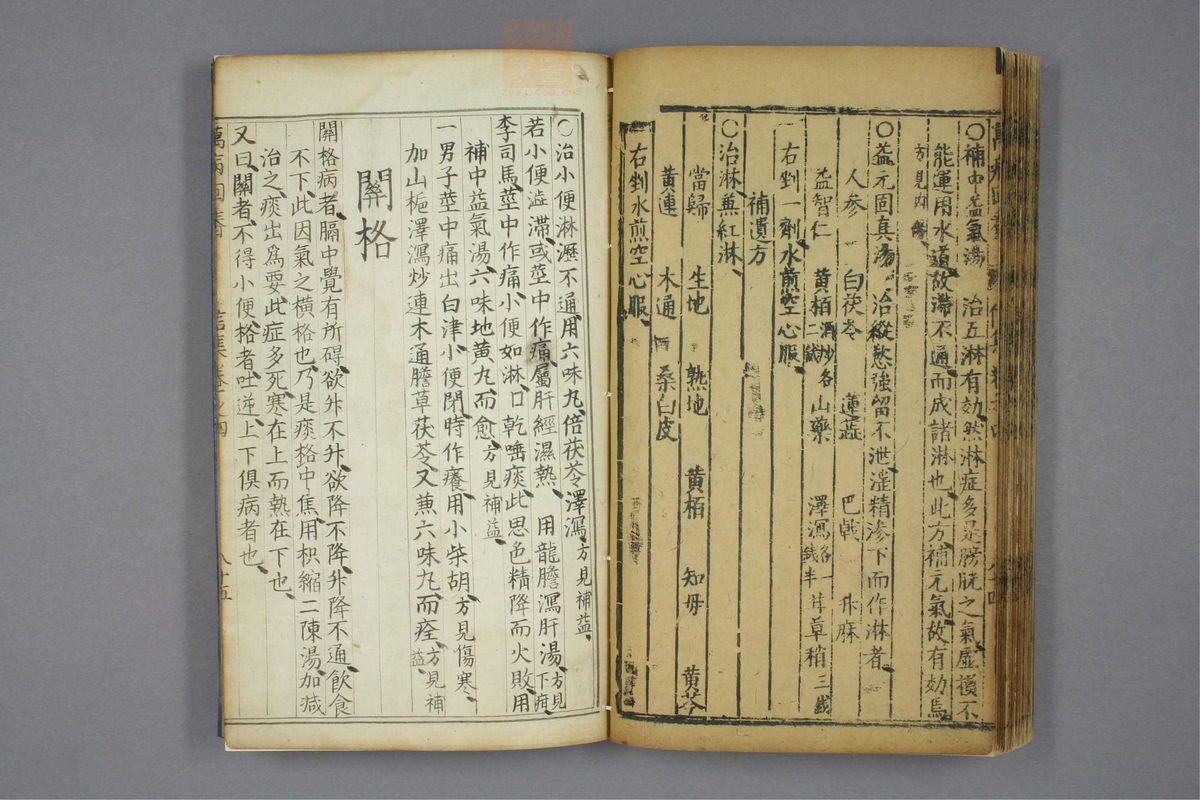 ○補中益氣湯　治五淋有効然淋症多是膀胱之氣虛損不
能運用水道故滯不通而成諸淋也此方補元氣故有効焉
方見內傷
○益元固真湯　治縱慾強留不泄淫精滲下而作淋者
人參　白茯苓　蓮蕋　巴戟　升麻
益智仁　黃栢酒炒各二錢　山藥　澤瀉各一錢半　甘草稍三錢
右剉一劑水煎空心服
補遺方
○治淋兼紅淋
當歸　生地　熟地　黃栢　知母　黃芩
黃連　木通　桑白皮
右剉水煎空心服
○治小便淋瀝不通用六味丸倍茯苓澤瀉方見補益
若小便澁滯或莖中作痛屬肝經濕熱　用龍膽瀉肝湯方見下疳
李司馬莖中作痛小便如淋口乾唾痰此思色精降而火敗用
補中益氣湯六味地黃丸而愈方見補益
一男子莖中痛出白津小便閉時作癢用小柴胡方見傷寒
加山梔澤瀉炒連木通膽草茯苓又兼六味丸而痊方見補益
關格
關格病者膈中覺有所碍欲升不升欲降不降升降不通飲食
不下此因氣之橫格也乃是痰格中焦用枳縮二陳湯加減
治之痰出爲要此症多死寒在上而熱在下也
又曰關者不得小便格者吐逆上下俱病者也
萬病回春　信集卷之四　八十五